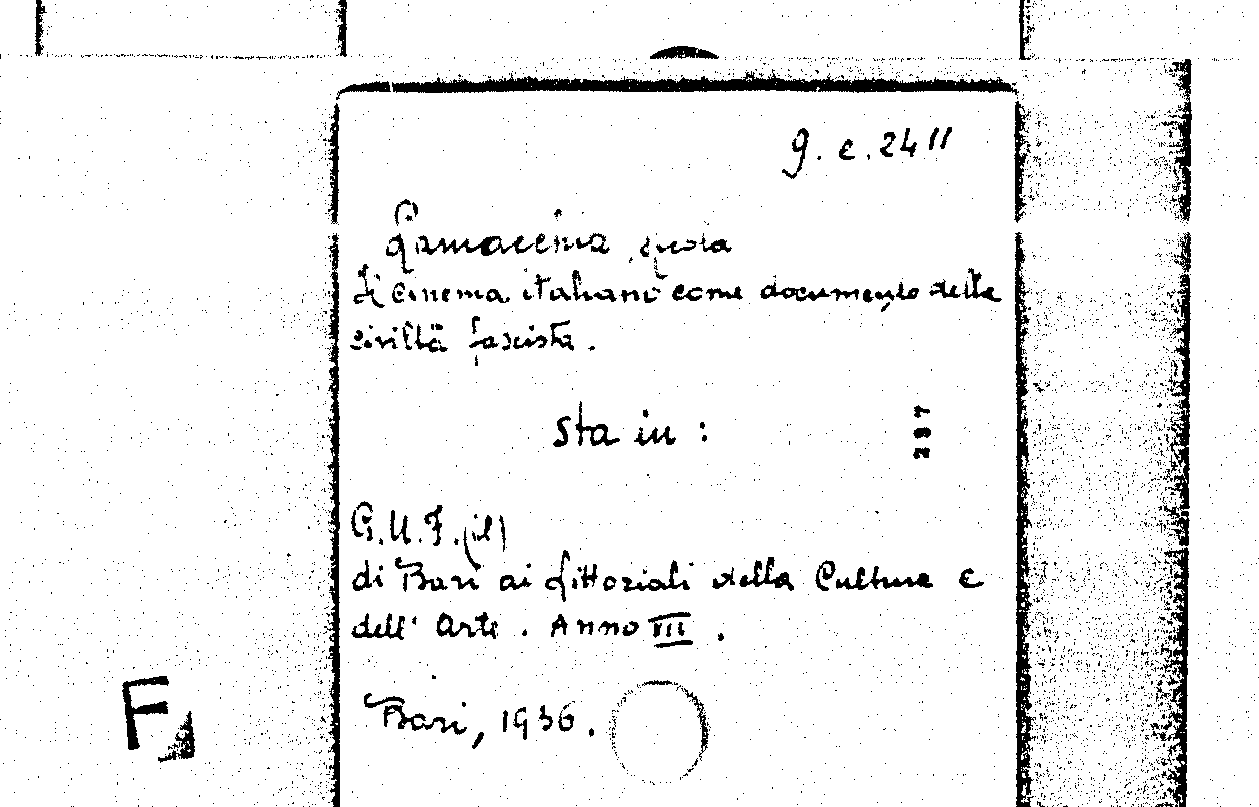 g. c. 2411
Lamacchia
Il cinema italiano come documento della
civiltà fascista.
sta in :
397
G.U.F. (il)
di Bari ai Littoriali della Cultura e
dell' Arte. Anno III.
Bari, 1936.
F